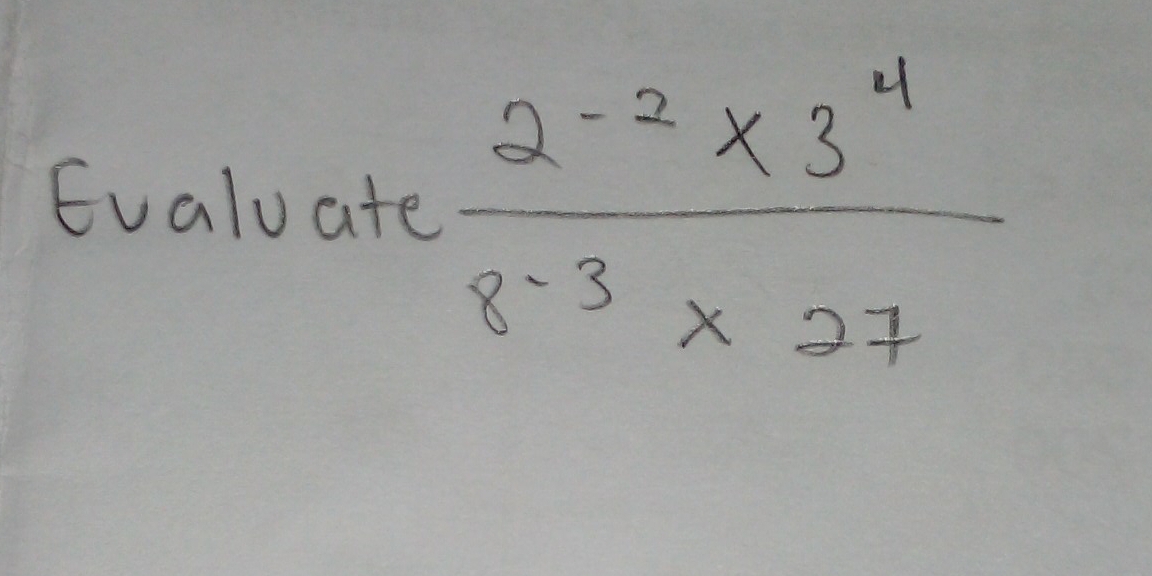 Evaluate 2⁻² × 3⁴
8⁻³ × 27